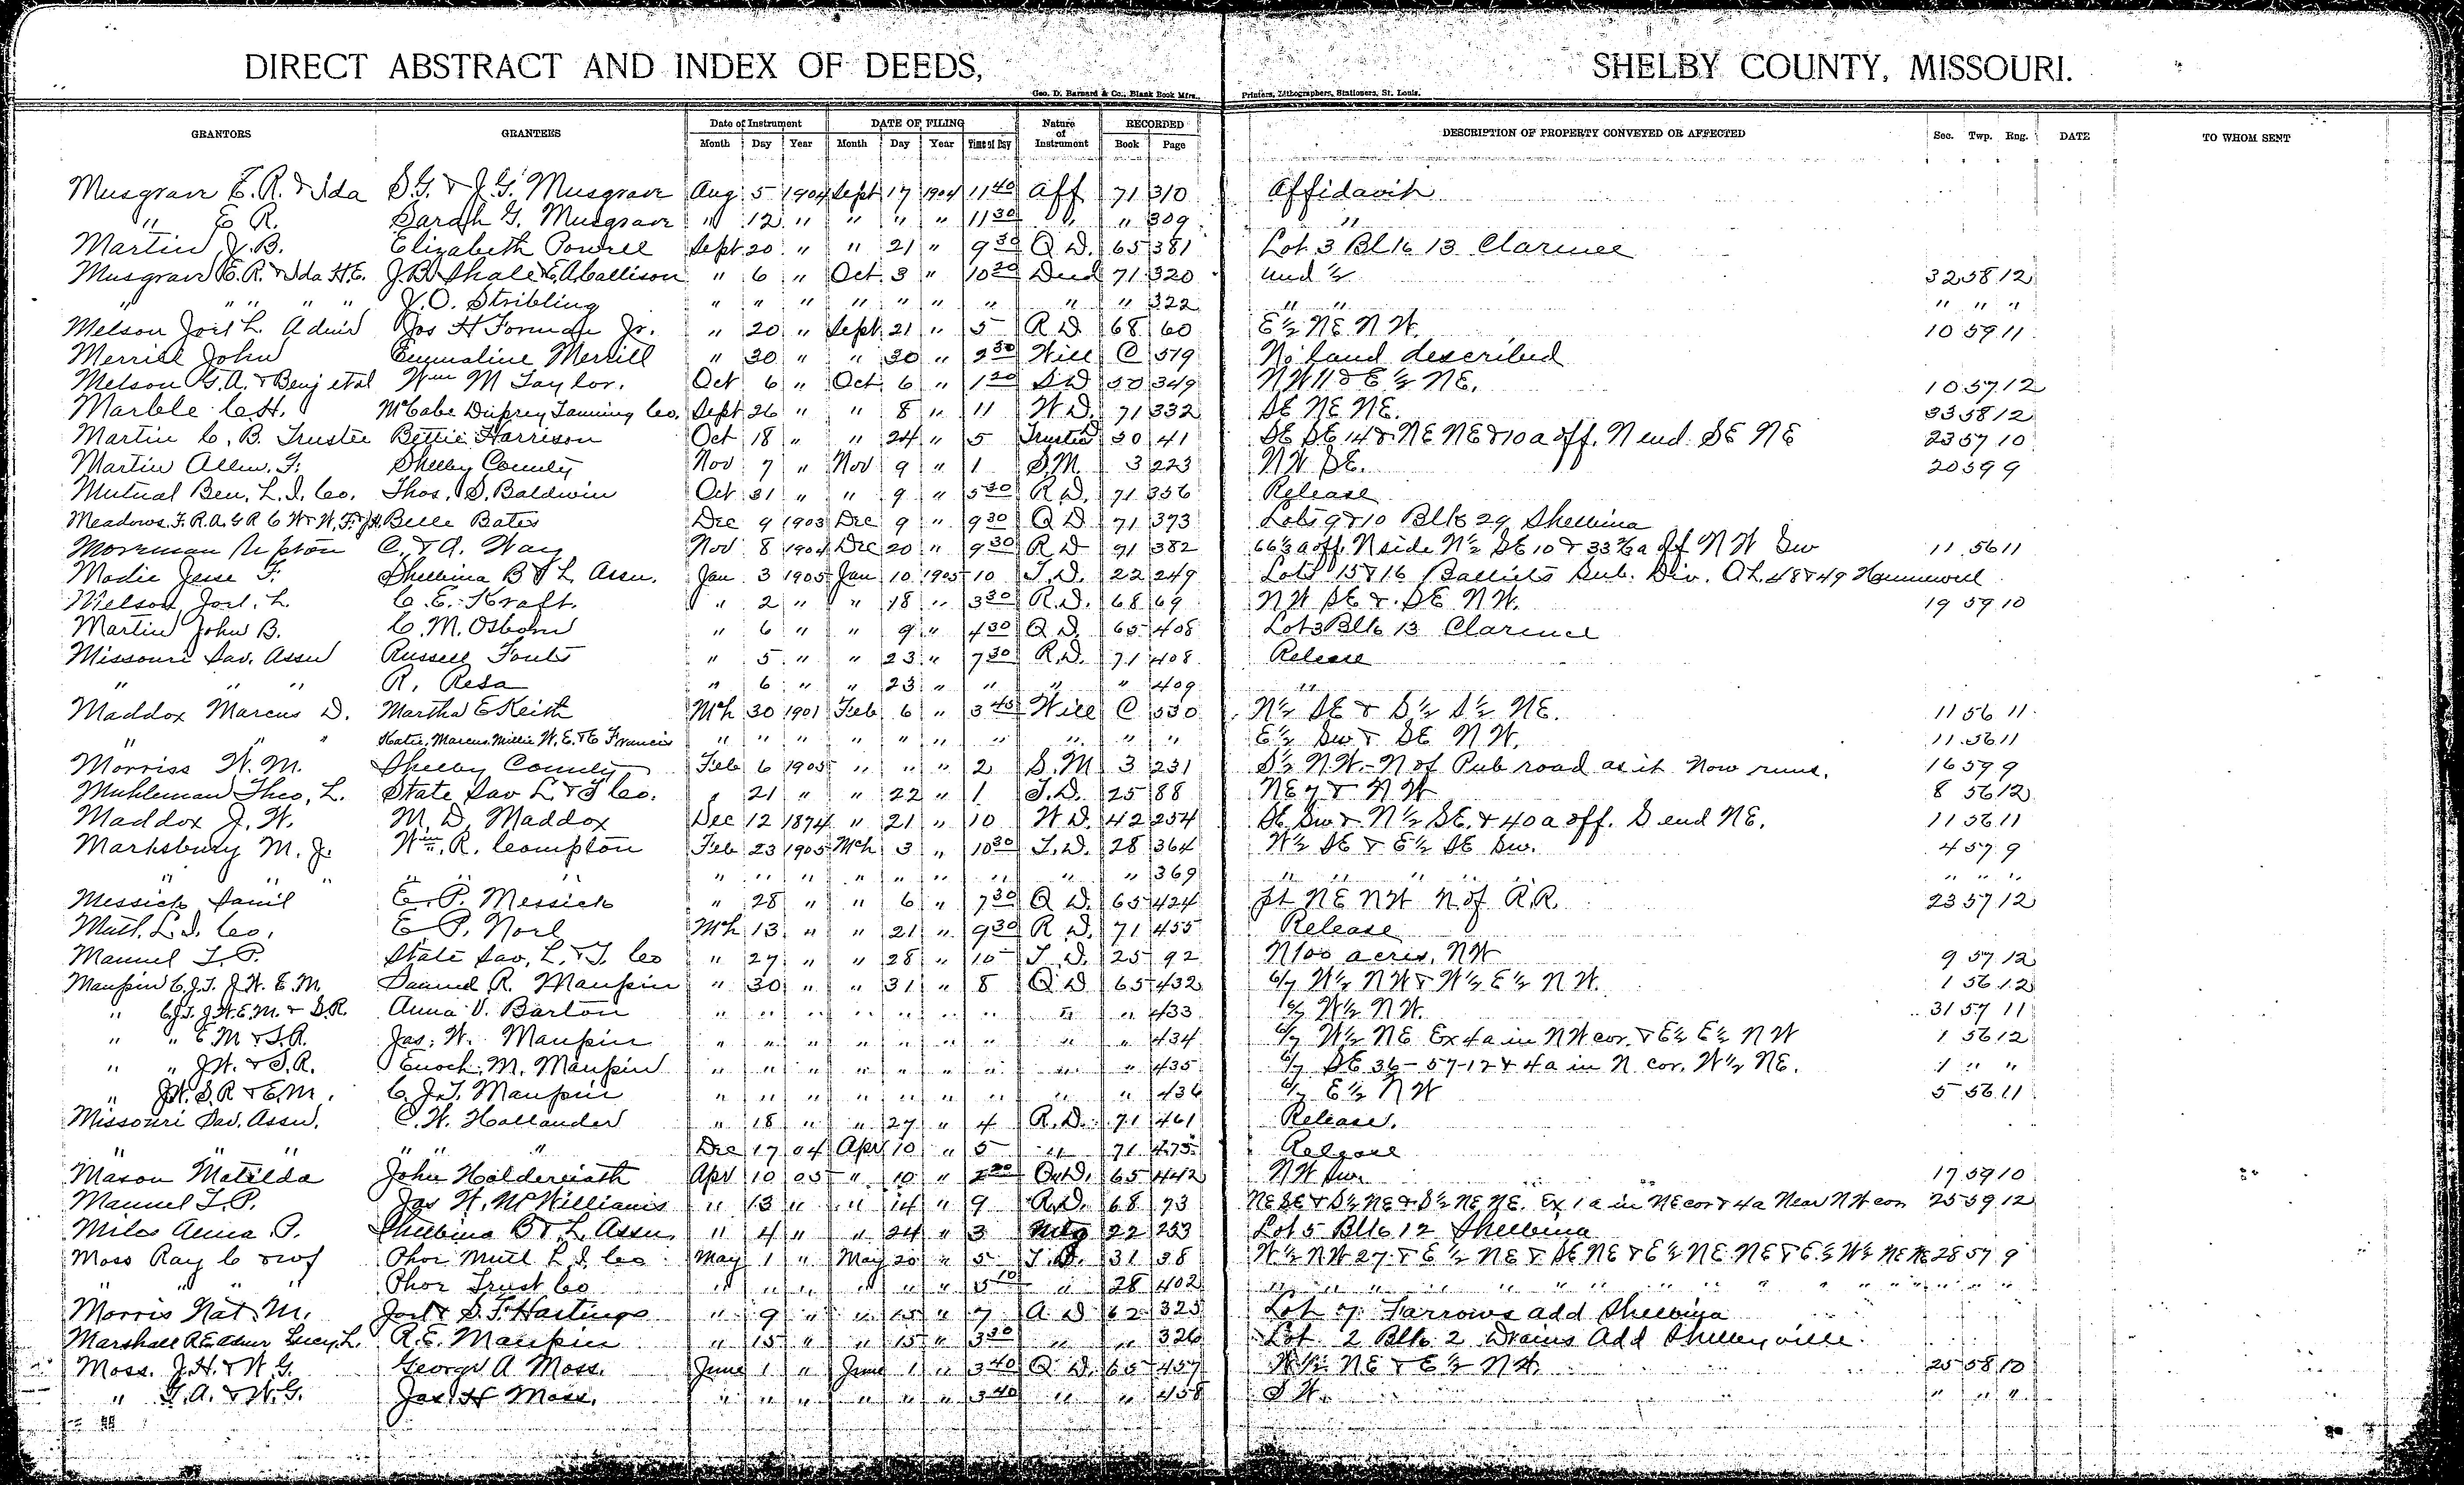 DIRECT ABSTRACT AND INDEX OF DEEDS, SHELBY COUNTY, MISSOURI.
Geo. D. Barnard & Co., Blank Book Mfrs., Printers, Lithographers, Stationers, St. Louis.
GRANTORS GRANTEES Date of Instrument DATE OF FILING Nature of Instrument RECORDED DESCRIPTION OF PROPERTY CONVEYED OR AFFECTED Sec. Twp. Rng. DATE TO WHOM SENT
Month Day Year Month Day Year Time of Day Book Page
Musgrave E. R. & Ida S. G. & J. G. Musgrave Aug 5 1904 Sept 17 1904 11 40 Aff 71 310 Affidavit
" E R. Sarah G. Musgrave " 12 " " " " 11 30 " " 309 "
Martin J. B. Elizabeth Powell Sept 20 " " 21 " 9 30 Q D. 65 381 Lot 3 Blk 13 Clarence
Musgrave E. R. & Ida H. E. J. B. Shale & E. A. Callison " 6 " Oct 3 " 10 20 Deed 71 320 und ½ 32 58 12
" " " " " J. O. Stribling " " " " " " " " " 322 " " " " "
Melson Joel L. Admr Jos H Forman Jr. " 20 " Sept 21 " 5 R D 68 60 E½ NE NW. 10 59 11
Merrill John Emmaline Merrill " 30 " " 30 " 2 30 Will C 519 No land described
Melson G. A. & Benj etal Wm M Taylor. Oct 6 " Oct 6 " 1 20 S D 50 349 NW 11 & E½ NE. 10 57 12
Marble C. H. McCabe Duprey Tanning Co. Sept 26 " " 8 " 11 W D. 71 332 SE NE NE. 33 58 12
Martin C. B. Trustee Bettie Harrison Oct 18 " " 24 " 5 Trustee D 30 41 SE SE 14 & NE NE & 10 a off. N end SE NE 23 57 10
Martin Allen. F. Shelby County Nov 7 " Nov 9 " 1 S. M. 3 223 NW SE. 20 59 9
Mutual Ben. L. I. Co. Thos. S. Baldwin Oct 31 " " 9 " 5 30 R D. 71 356 Release
Meadows. F. R. A. G R C W & W. F. Belle Bates Dec 9 1903 Dec 9 " 9 30 Q D 71 373 Lots 9 & 10 Blk 29 Shelbina
Moreman Upton C. & A. Way Nov 8 1904 Dec 20 " 9 30 R D 91 382 66⅔ a off. N side N½ SE 10 & 33⅓ a off NW Sw 11 56 11
Modie Jesse F. Shelbina B & L Assn. Jan 3 1905 Jan 10 1905 10 T. D. 22 249 Lots 15 & 16 Balliets Sub. Div. O L. 48 & 49 Hunnewell
Melson Joel. L. C. E. Kraft. " 2 " " 18 " 3 30 R. D. 68 69 NW SE & SE NW. 19 59 10
Martin John B. C. M. Osborn " 6 " " 9 " 4 30 Q D 65 408 Lot 3 Blk 13 Clarence
Missouri Sav. Assn Russell Fouts " 5 " " 23 " 7 30 R. D. 71 408 Release
" " " R. Resa " 6 " " 23 " " " " 409 "
Maddox Marcus D. Martha E Keith Mch 30 1901 Feb 6 " 3 45 Will C 530 N½ SE & S½ S½ NE. 11 56 11
" " " Katie, Marcus, Millie W. E. & E Francis " " " " " " " " " " E½ Sw & SE NW. 11 56 11
Morriss W. M. Shelby County Feb 6 1905 " " " 2 S. M 3 231 S½ N.W. - N of Pub road as it Now runs. 16 59 9
Muhleman Theo, L. State Sav L & T Co. " 21 " " 22 " 1 T. D. 25 88 NE 7 & NW 8 56 12
Maddox J. W. M. D. Maddox Dec 12 1874 " 21 " 10 W D. 42 254 SE Sw & N½ SE. & 40 a off. S end NE. 11 56 11
Marksbury M. J. Wm. R. Compton Feb 23 1905 Mch 3 " 10 30 T. D. 28 364 W½ SE & E½ SE Sw. 4 57 9
" " " " " " " " " " " " " " " 369 " " " " " " " "
Messick Samil E. P. Messick " 28 " " 6 " 7 30 Q D. 65 424 Pt NE NW N of R.R. 23 57 12
Mutl. L. I. Co. E P. Noel Mch 13 " " 21 " 9 30 R D. 71 455 Release
Manuel T. P. State Sav. L. & T. Co " 27 " " 28 " 10 T D. 25 92 N 100 acres. NW 9 57 12
Maupin C. J. T. J. W. E. M. Samuel R. Maupin " 30 " " 31 " 8 Q D 65 432 6/7 W½ NW & W½ E½ NW. 1 56 12
" C. J. T. J. W. E. M. & S. R. Anna V. Barton " " " " " " " " " 433 6/7 W½ NW. 31 57 11
" " E M & S. R. Jas. W. Maupin " " " " " " " " " 434 6/7 W½ NE Ex 4 a in NW cor. & E½ E½ NW 1 56 12
" " J W. & S. R. Enoch M. Maupin " " " " " " " " " 435 6/7 SE 36-57-12 & 4 a in N cor. W½ NE. 1 " "
" J W. S. R & E M. C. J. T. Maupin " " " " " " " " " 436 6/7 E½ NW 5 56 11
Missouri Sav. Assn. C. W. Hollander " 18 " " 27 " 4 R. D. 71 461 Release.
" " " " " " Dec 17 04 Apr 10 " 5 " 71 475 Release
Mason Matilda John Holderieath Apr 10 05 " 10 " 2 20 Q D. 65 442 NW Sw 17 59 10
Manuel T. P. Jas W. McWilliams " 13 " " 14 " 9 R. D. 68 73 NE SE & S½ NE & S½ NE NE. Ex 1 a in NE cor & 4 a Near NW cor 25 59 12
Miles Anna P. Shelbina B & L Assn. " 4 " " 24 " 3 Mtg 22 253 Lot 5 Blk 12 Shelbina
Moss Ray C & wf Phoe Mutl L I. Co May 1 " May 20 " 5 T. D. 31 38 W½ NW 27 & E½ NE & SE NE & E½ NE NE & E½ W½ NE NE 28 57 9
" " " " Phoe Trust Co " " " " " " 5 10 " 28 402 " " " " " " " " " "
Morris Nat. M. Joel & S. F. Hastings " 9 " " 15 " 7 A D 62 325 Lot 7 Farrows add Shelbina
Marshall R E Admr Lucy L. R. E. Maupin " 15 " " 15 " 3 30 " " 326 Lot 2 Blk 2 Drains Add Shelbyville.
Moss. J. H. & W. G. George A Moss. June 1 " June 1 " 3 40 Q D. 65 457 W½ NE & E½ NW. 25 58 10
" G. A. & W. G. Jas H Moss. " " " " " " 3 40 " " 458 S W. " " "